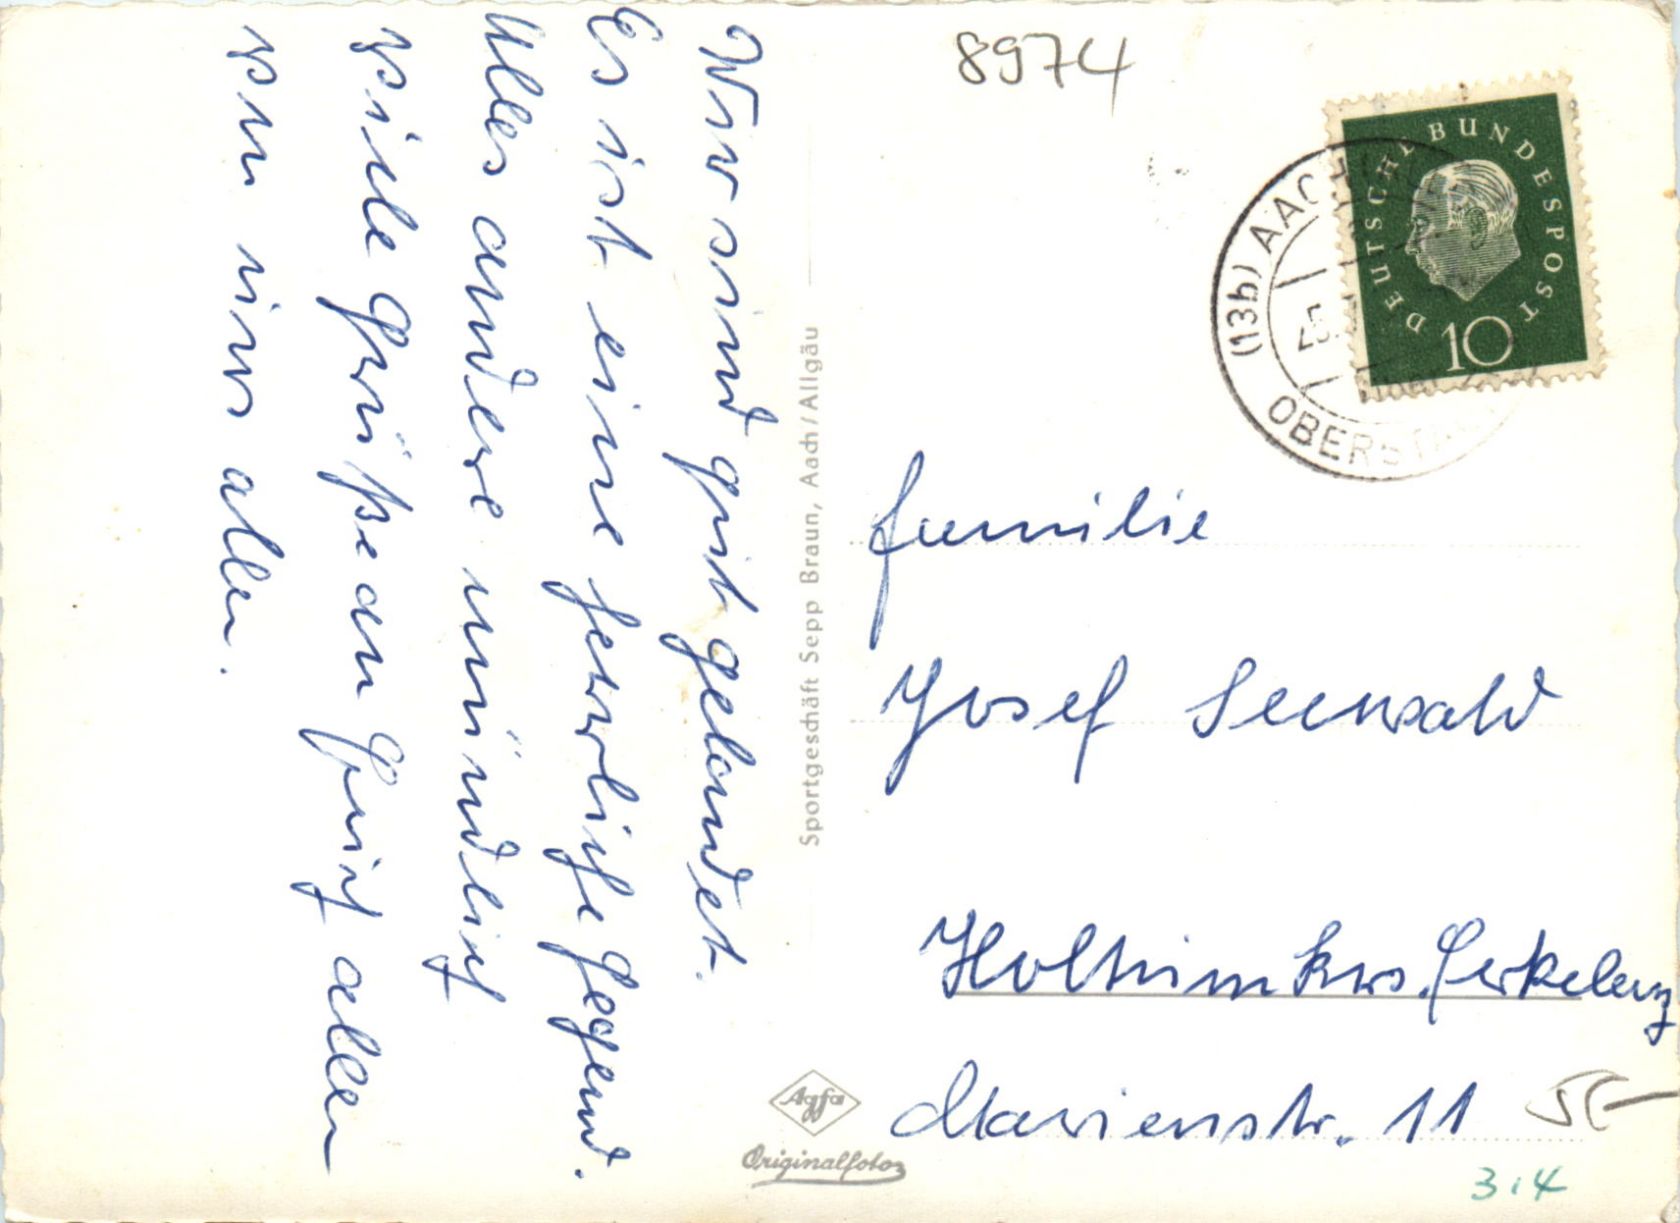 Wir sind gut gelandet.
Es ist eine herrliche Gegend.
Alles andere mündlich
viele Grüße an Euch allen
von uns allen.
Sportgeschäft Sepp Braun, Aach/Allgäu
Agfa
Originalfoto
8974
DEUTSCHE BUNDESPOST
10
(13b) AACH
OBERSTAU
Familie
Josef Seewald
Holtum Krs. Erkelenz
Marienstr. 11
3.4